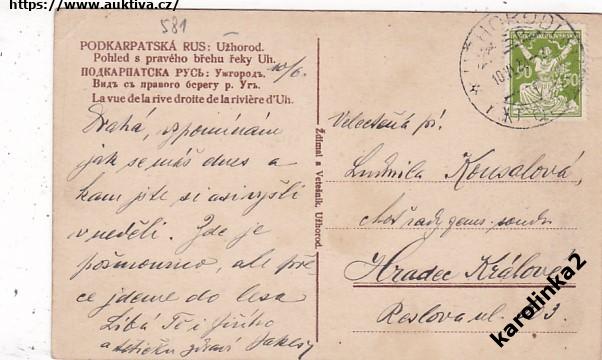 https://www.auktiva.cz/
581
PODKARPATSKÁ RUS: Užhorod.
Pohled s pravého břehu řeky Uh.
ПОДКАРПАТСКА РУСЬ: Ужгородъ.
Видъ съ правого берегу р. Угъ.
La vue de la rive droite de la rivière d'Uh.
10/6.
Drahá, vzpomínám
jak se máš dnes a
kam jste si asi vyšli
v neděli. Zde je
pošmourno, ale pře
ce jdeme do lesa
Líbá Tě i Jiřího
a tetičku zdraví
Ždímal a Vetešník, Užhorod.
UŽHOROD
50 50
Velectěná pí.
Ludmila Konsalová,
choť rady zems. soudu
Hradec Králové
Reslova ul. 3.
karolinka2